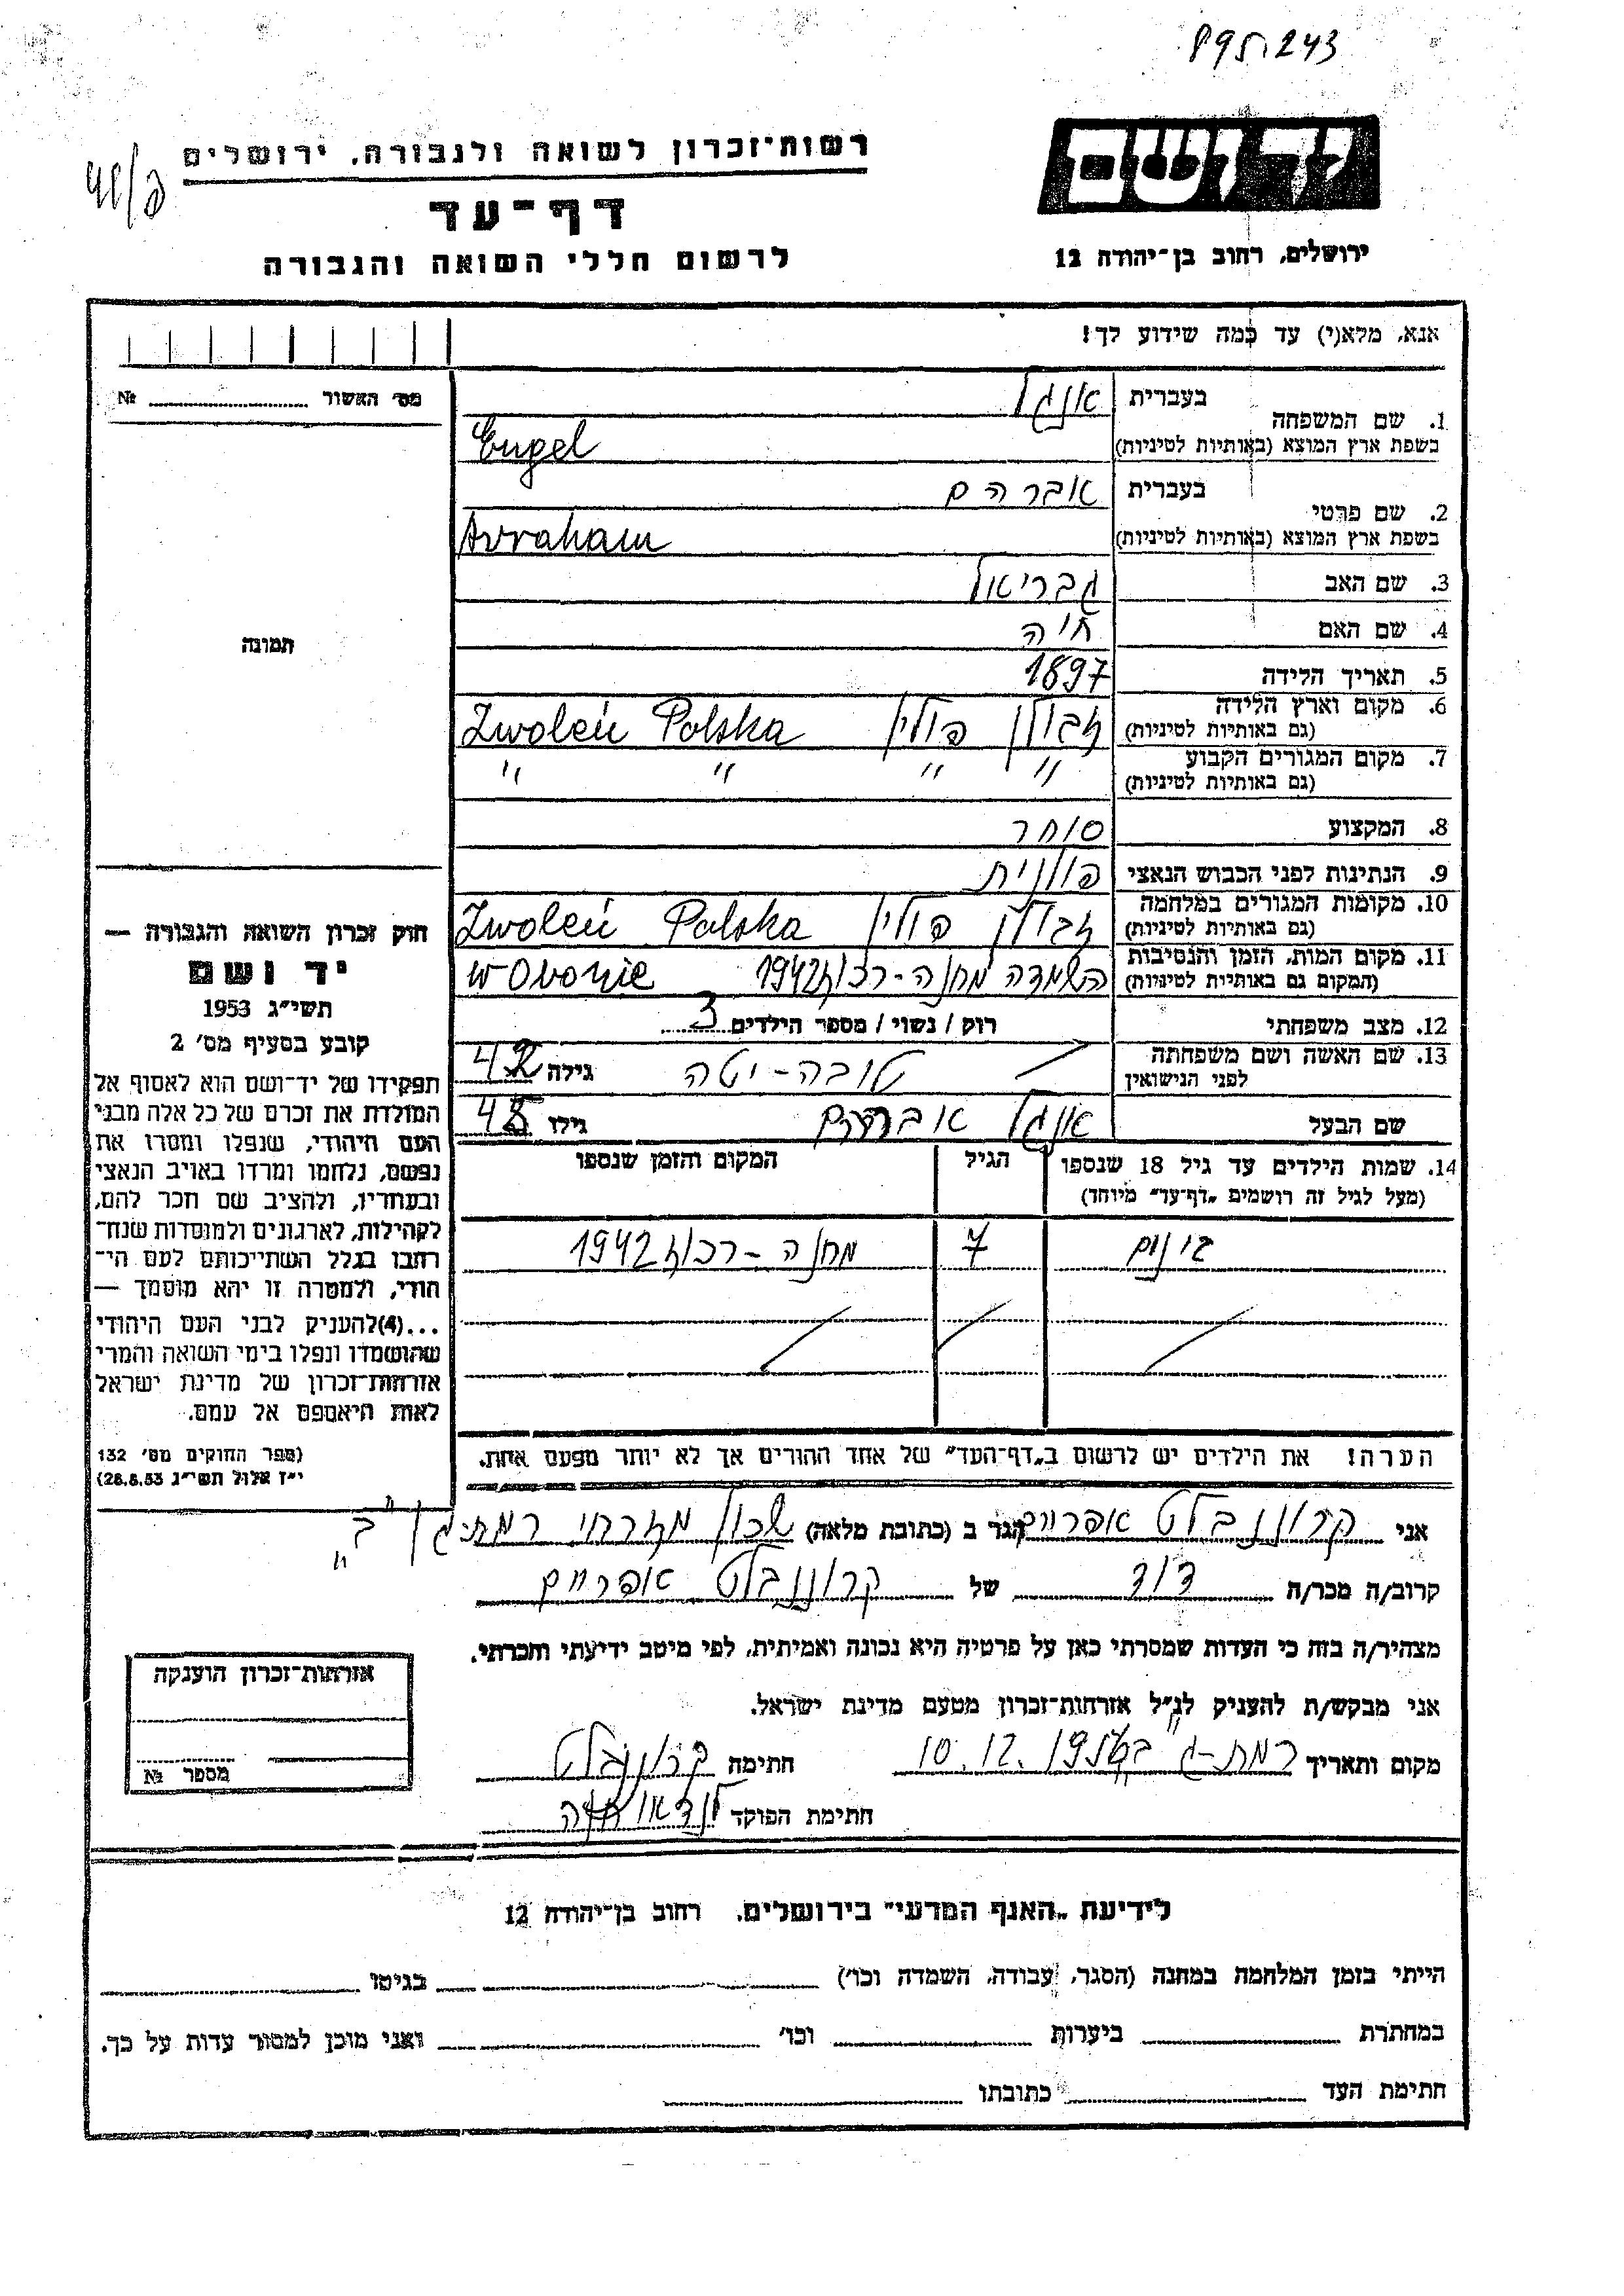 895.243
יד ושם
רשות־זכרון לשואה ולגבורה, ירושלים
דף־עד
ירושלים, רחוב בן־יהודה 12
לרשום חללי השואה והגבורה
אנא, מלא(י) עד כמה שידוע לך!
מס׳ האשור № 
1. שם המשפחה
בעברית אנגל
בשפת ארץ המוצא (באותיות לטיניות) Engel
2. שם פרטי
בעברית אברהם
בשפת ארץ המוצא (באותיות לטיניות) Avraham
3. שם האב גבריאל
4. שם האם חיה
5. תאריך הלידה 1897
6. מקום וארץ הלידה
(גם באותיות לטיניות) זבולן פולין Zwoleń Polska
7. מקום המגורים הקבוע
(גם באותיות לטיניות) " " " "
8. המקצוע סוחר
9. הנתינות לפני הכבוש הנאצי פולנית
10. מקומות המגורים במלחמה
(גם באותיות לטיניות) זבולן פולין Zwoleń Polska
11. מקום המות, הזמן והנסיבות
(המקום גם באותיות לטיניות) השמדה מחנה-רכוז 1942 w Obozie
12. מצב משפחתי רוק / נשוי / מספר הילדים 3
13. שם האשה ושם משפחתה
לפני הנישואין טובה-יטה גילה 42
שם הבעל אנגל אברהם גילו 45
14. שמות הילדים עד גיל 18 שנספו
(מעל לגיל זה רושמים „דף־עד״ מיוחד)
הגיל
המקום והזמן שנספו
בינום 7 מחנה-רכוז 1942
הערה! את הילדים יש לרשום ב„דף־העד״ של אחד ההורים אך לא יותר מפעם אחת.
תמונה
חוק זכרון השואה והגבורה —
יד ושם
תשי״ג 1953
קובע בסעיף מס׳ 2
תפקידו של יד־ושם הוא לאסוף אל
המולדת את זכרם של כל אלה מבני
העם היהודי, שנפלו ומסרו את
נפשם, נלחמו ומרדו באויב הנאצי
ובעוזריו, ולהציב שם וזכר להם,
לקהילות, לארגונים ולמוסדות שנח־
רבו בגלל השתייכותם לעם הי־
הודי, ולמטרה זו יהא מוסמך —
...(4)להעניק לבני העם היהודי
שהושמדו ונפלו בימי השואה והמרי
אזרחות־זכרון של מדינת ישראל
לאות היאספם אל עמם.
(ספר החוקים מס׳ 132
י״ז אלול תשי״ג 28.8.53)
אני קרוננבלט אפרים הגר ב (כתובת מלאה) שכון מזרחי רמת-גן "ב"
קרוב/ה מכר/ה דוד של קרוננבלט אפרים
מצהיר/ה בזה כי העדות שמסרתי כאן על פרטיה היא נכונה ואמיתית, לפי מיטב ידיעתי והכרתי.
אני מבקש/ת להעניק לנ״ל אזרחות־זכרון מטעם מדינת ישראל.
מקום ותאריך רמת-ג 10.12.1956 חתימה קרוננבלט
חתימת הפוקד לנדאו חוה
אזרחות־זכרון הוענקה
מספר №
לידיעת „האגף המדעי״ בירושלים, רחוב בן־יהודה 12
הייתי בזמן המלחמה במחנה (הסגר, עבודה, השמדה וכו׳) בגיטו
במחתרת ביערות וכו׳ ואני מוכן למסור עדות על כך.
חתימת העד כתובתו